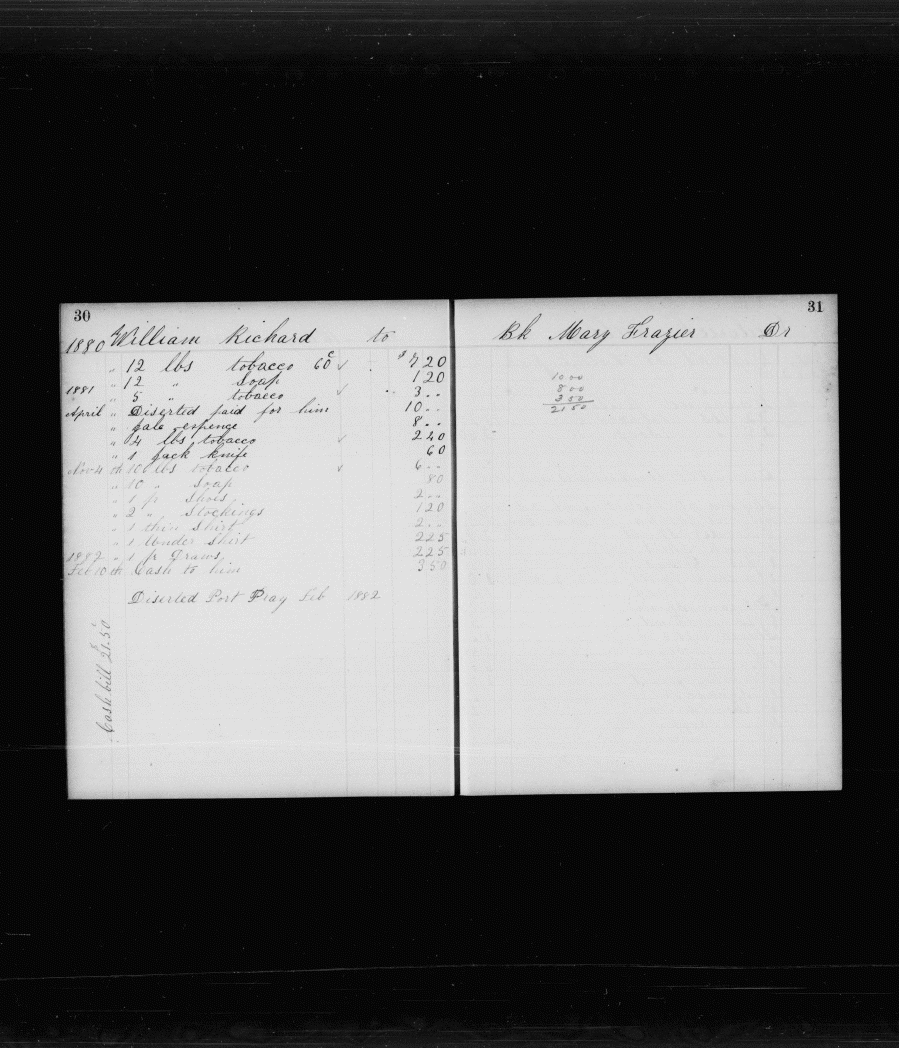 30
1880 William Richard to
" 12 lbs tobacco 60c $7 20
" 12 " Soap 1 20
1881 " 5 " tobacco 3 ..
April " Diserted paid for him 10 ..
" Gale espence 8 ..
" 4 lbs tobacco 2 40
" 1 Jack knife 60
Nov 4 th 10 lbs tobacco 6 ..
" 10 " Soap 80
" 1 pr Shoes 2 ..
" 2 " Stockings 1 20
" 1 thin Shirt 2 ..
" 1 Under Shirt 2 25
1882 " 1 pr Draws 2 25
Feb 10 th Cash to him 3 50
Diserted Port Pray Feb 1882
Cash bill 21.50
31
Bk Mary Frazier Dr
10 00
8 00
3 50
21 50